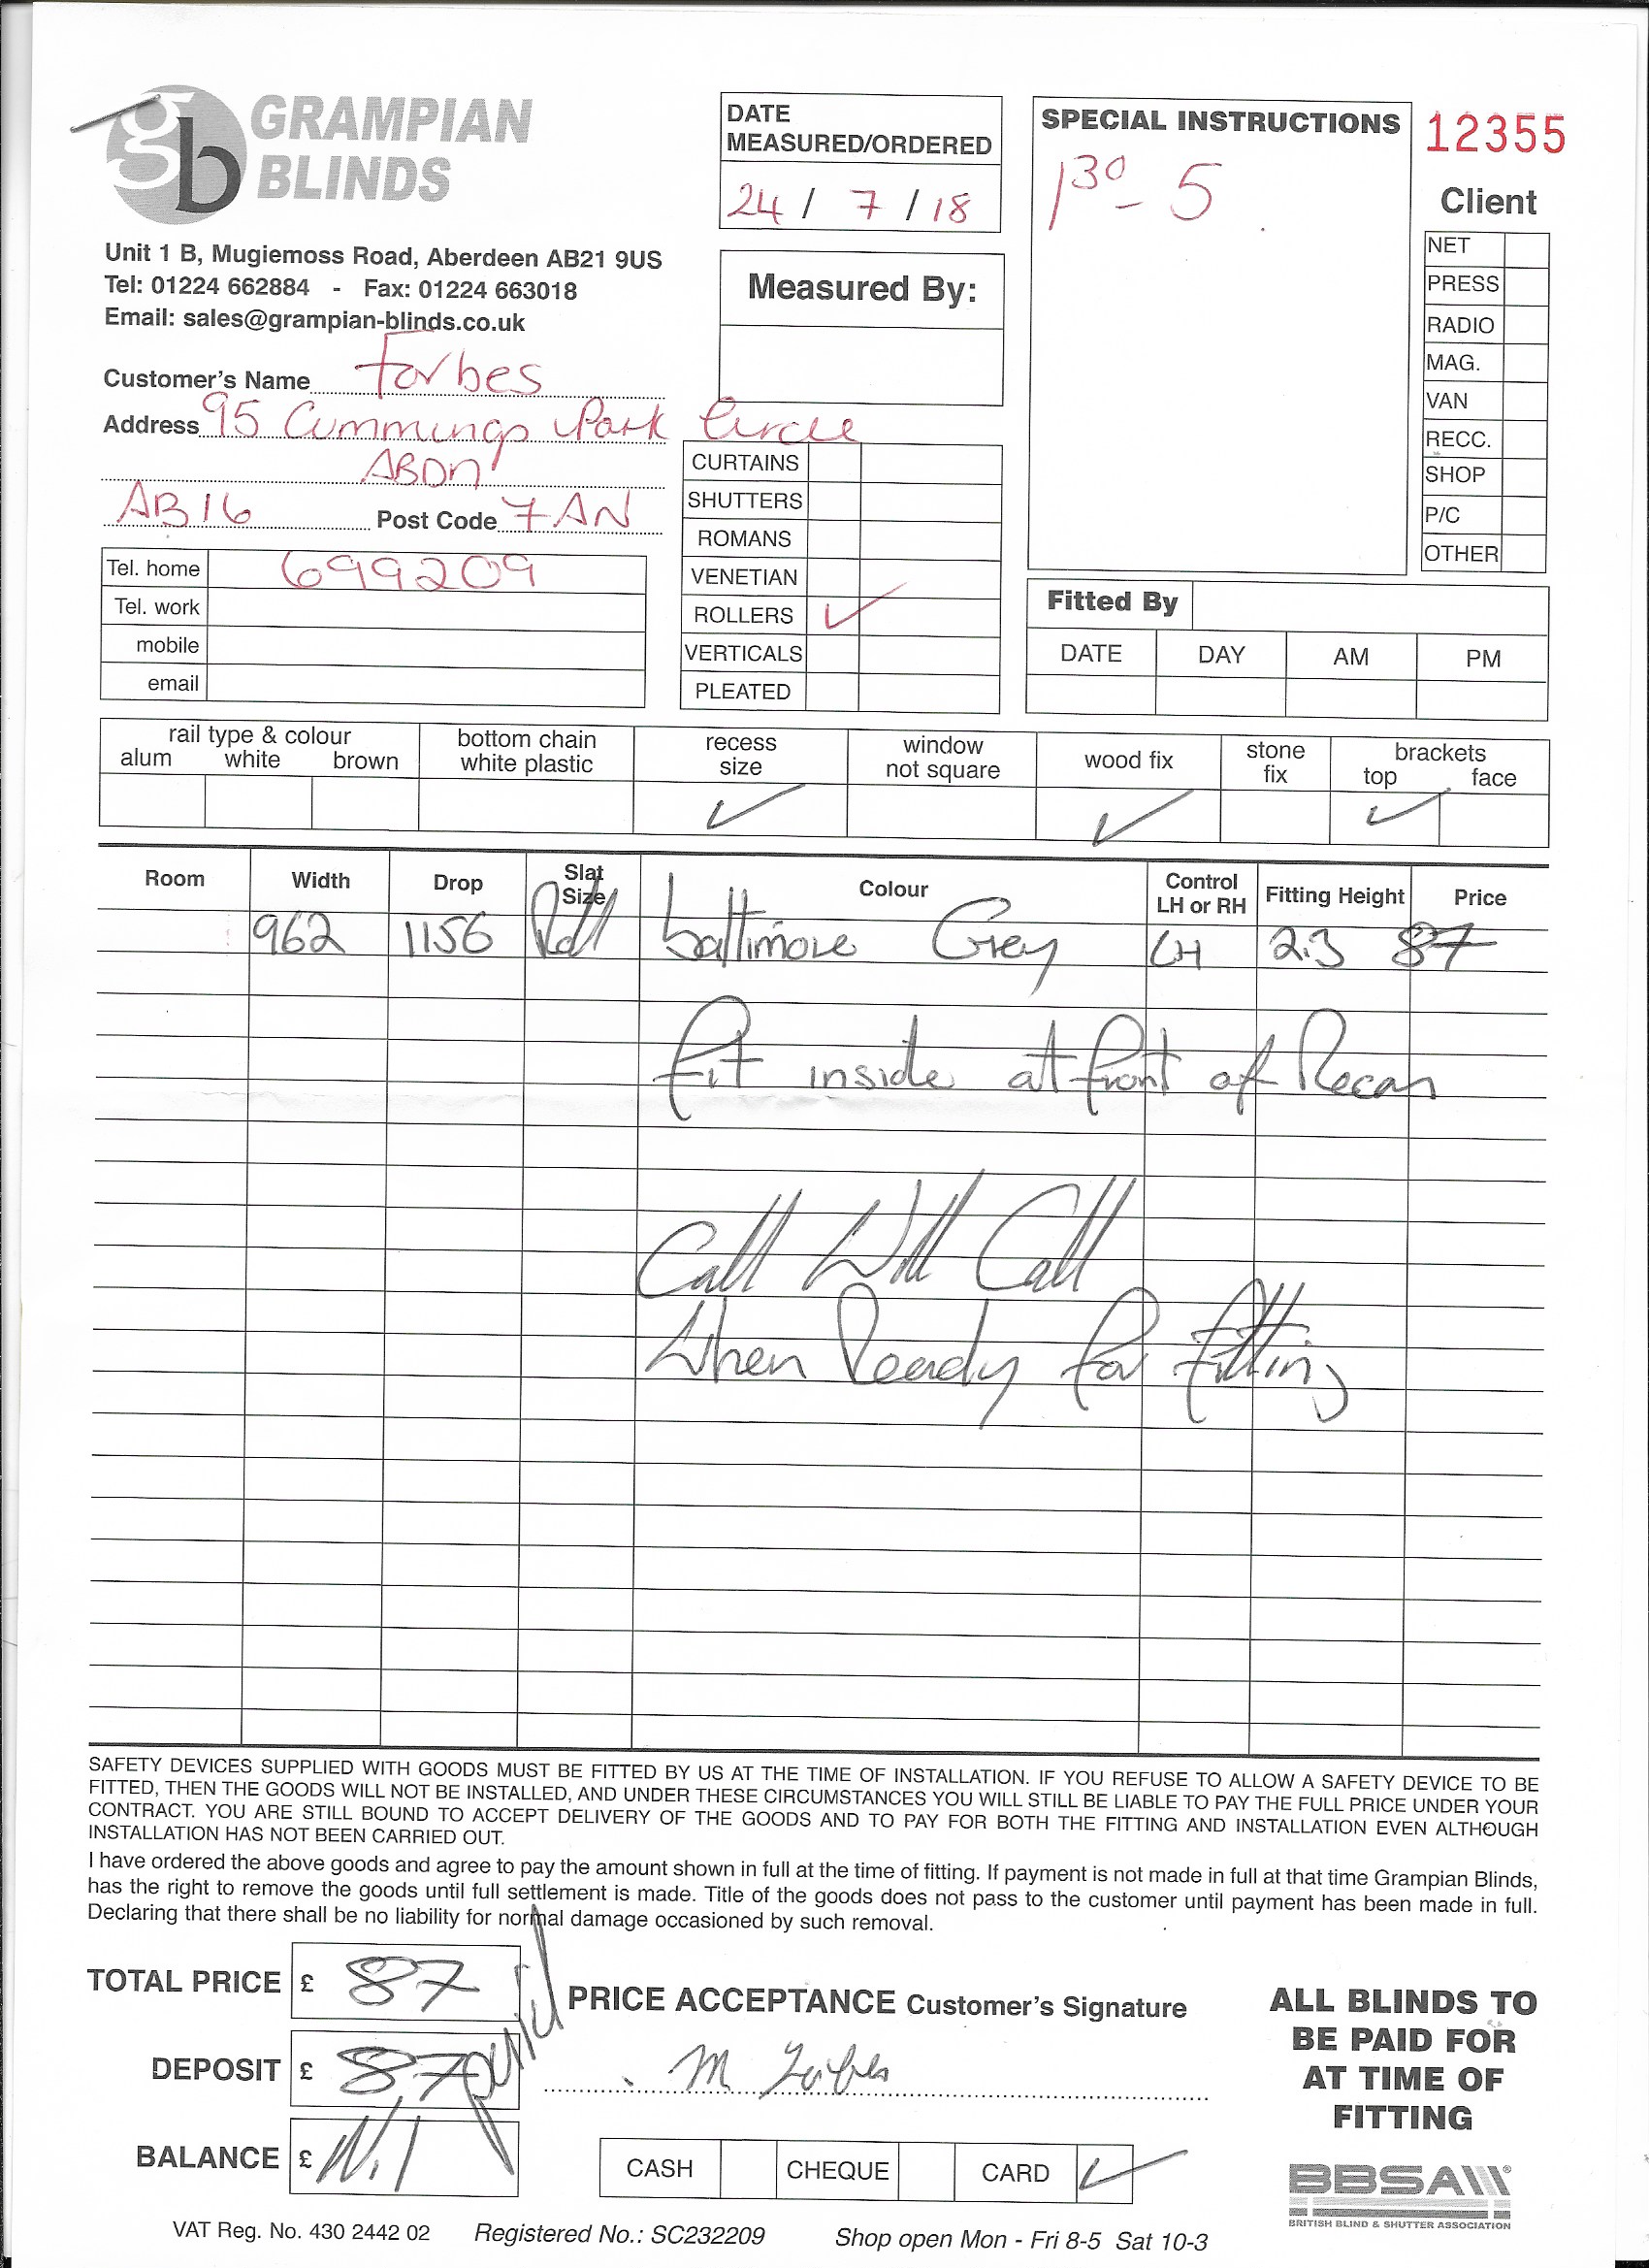 gb GRAMPIAN BLINDS
Unit 1 B, Mugiemoss Road, Aberdeen AB21 9US
Tel: 01224 662884 - Fax: 01224 663018
Email: sales@grampian-blinds.co.uk
DATE MEASURED/ORDERED
24 / 7 / 18
Measured By:
SPECIAL INSTRUCTIONS
1 30 - 5
12355
Client
NET
PRESS
RADIO
MAG.
VAN
RECC.
SHOP
P/C
OTHER
Customer's Name Forbes
Address 95 Cummings Park Circle
ABDN
AB16 Post Code 7AN
Tel. home 699209
Tel. work
mobile
email
CURTAINS
SHUTTERS
ROMANS
VENETIAN
ROLLERS ✓
VERTICALS
PLEATED
Fitted By
DATE DAY AM PM
rail type & colour
alum white brown
bottom chain white plastic
recess size ✓
window not square
wood fix ✓
stone fix
brackets
top ✓ face
Room Width Drop Slat Size Colour Control LH or RH Fitting Height Price
962 1156 Roll baltimore Grey LH 2.3 87
fit inside at front of Recess
Call Will Call
When Ready for fitting
SAFETY DEVICES SUPPLIED WITH GOODS MUST BE FITTED BY US AT THE TIME OF INSTALLATION. IF YOU REFUSE TO ALLOW A SAFETY DEVICE TO BE
FITTED, THEN THE GOODS WILL NOT BE INSTALLED, AND UNDER THESE CIRCUMSTANCES YOU WILL STILL BE LIABLE TO PAY THE FULL PRICE UNDER YOUR
CONTRACT. YOU ARE STILL BOUND TO ACCEPT DELIVERY OF THE GOODS AND TO PAY FOR BOTH THE FITTING AND INSTALLATION EVEN ALTHOUGH
INSTALLATION HAS NOT BEEN CARRIED OUT.
I have ordered the above goods and agree to pay the amount shown in full at the time of fitting. If payment is not made in full at that time Grampian Blinds,
has the right to remove the goods until full settlement is made. Title of the goods does not pass to the customer until payment has been made in full.
Declaring that there shall be no liability for normal damage occasioned by such removal.
TOTAL PRICE £ 87
DEPOSIT £ 87 paid
BALANCE £ Nil
PRICE ACCEPTANCE Customer's Signature
M Forbes
CASH CHEQUE CARD ✓
ALL BLINDS TO
BE PAID FOR
AT TIME OF
FITTING
BBSA
BRITISH BLIND & SHUTTER ASSOCIATION
VAT Reg. No. 430 2442 02 Registered No.: SC232209 Shop open Mon - Fri 8-5 Sat 10-3